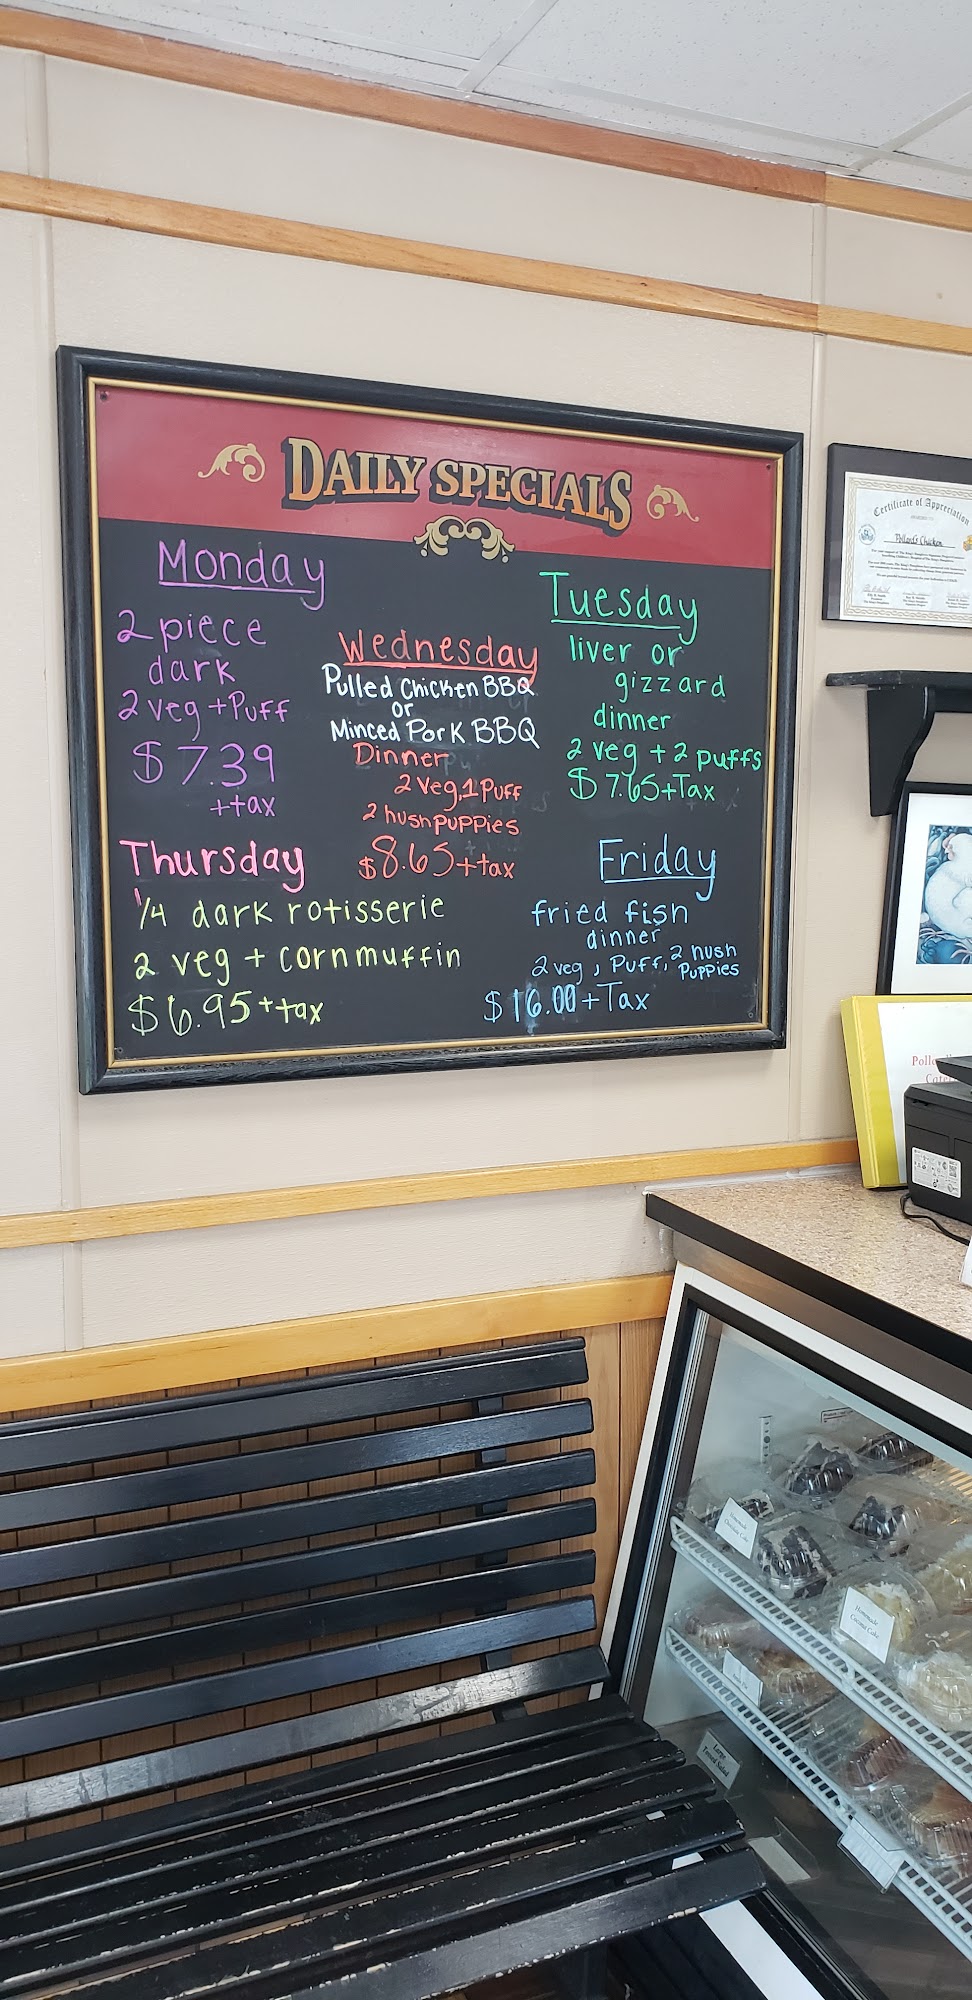 DAILY SPECIALS
Monday
2 piece
dark
2 veg + Puff
$7.39
+tax
Tuesday
liver or
gizzard
dinner
2 veg + 2 puffs
$7.65+Tax
Wednesday
Pulled Chicken BBQ
or
Minced Pork BBQ
Dinner
2 Veg, 1 Puff
2 hushpuppies
$8.65+tax
Thursday
1/4 dark rotisserie
2 veg + cornmuffin
$6.95+tax
Friday
fried fish
dinner
2 veg, Puff, 2 hush
Puppies
$16.00+Tax
Certificate of Appreciation
Pollard's Chicken
Homemade
Homemade
Coconut Cake
Large
Tossed Salad